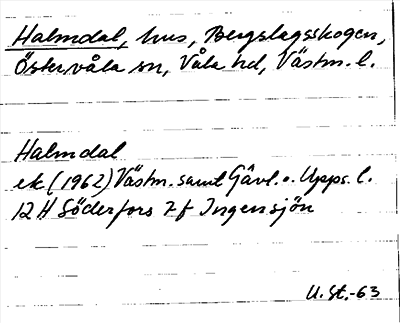 Halmdal, hus, Bergslagsskogen,
Östervåla sn, Våla hd, Västm. l.
Halmdal
ek (1962) Västm. samt Gävl. o. Upps. l.
12 H Söderfors 7 f Ingensjön
U. St. -63